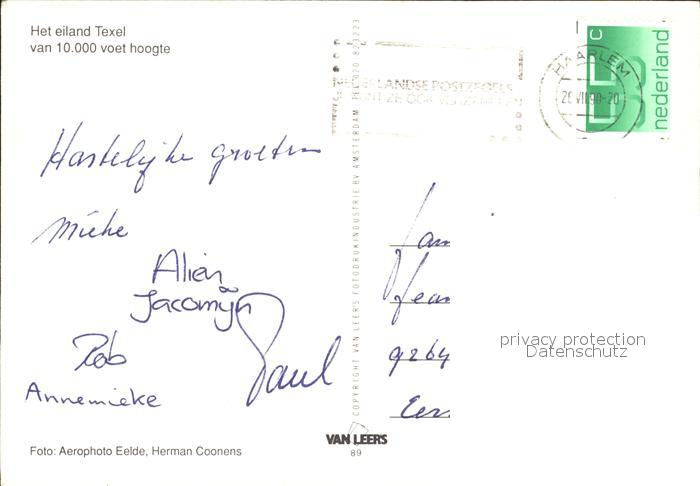 Het eiland Texel
van 10.000 voet hoogte
NEDERLANDSE POSTZEGELS
ZE OOK
HAARLEM
26 VII 90-20
55 c
nederland
Hartelijke groeten
Mieke
Alien
Jacomijn
Rob
Paul
Annemieke
COPYRIGHT VAN LEER'S FOTODRUKINDUSTRIE BV AMSTERDAM TEL 020
Jan
9264
privacy protection
Datenschutz
VAN LEERS
89
Foto: Aerophoto Eelde, Herman Coonens